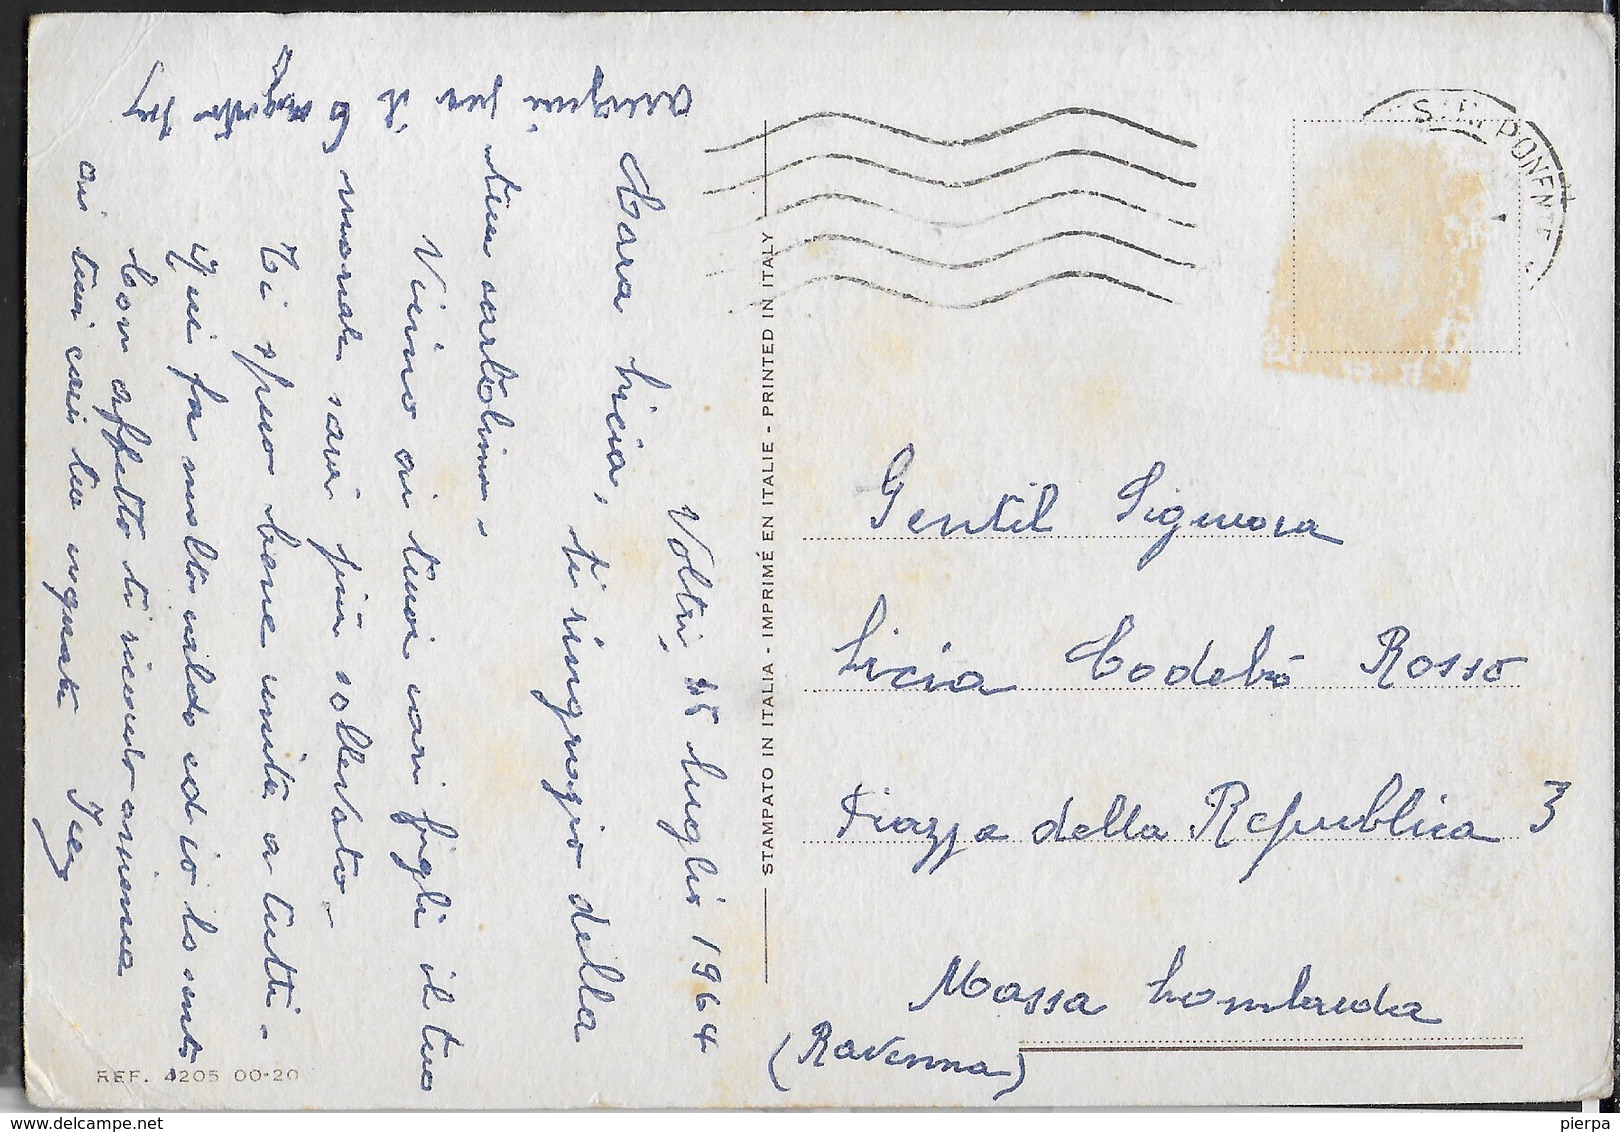 auguri per il 6 agosto
Voltri, 15 luglio 1964
Cara Licia, ti ringrazio della
tua cartolina.
Vicino ai tuoi cari figli il tuo
morale sarà più sollevato.
Ti spero bene unita a tutti.
Qui fa molto caldo ed io lo sento
Con affetto ti ricordo assieme
ai tuoi cari tua cognata
STAMPATO IN ITALIA - IMPRIMÉ EN ITALIE - PRINTED IN ITALY
REF. 4205 00-20
PONENTE
Gentil Signora
Licia Codebò Rosso
Piazza della Republica 3
Massa Lombarda
(Ravenna)
delcampe.net
pierpa